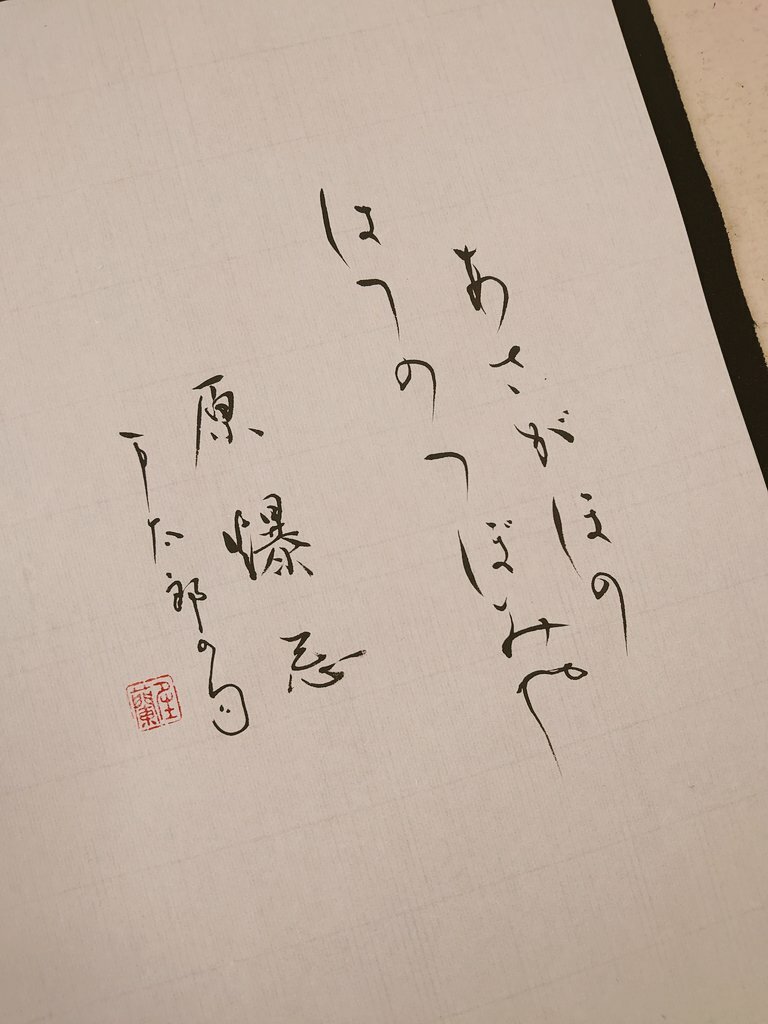 あさがほの
はつのつぼみや
原爆忌
万太郎の句
蘭